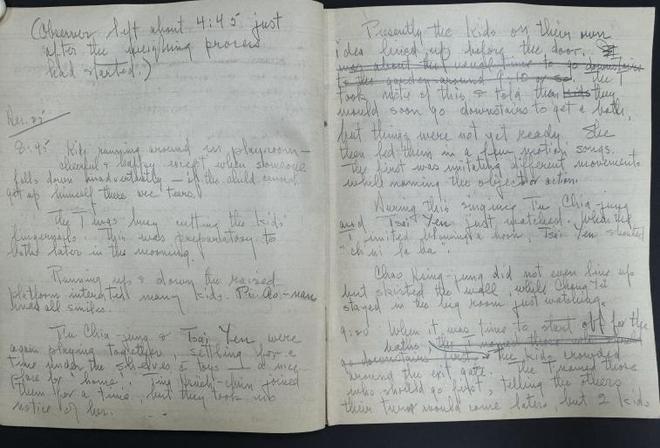 (Observer left about 4:45 just
after the weighing process
had started.)
Dec. 22
8:45 Kids running around in playroom -
cheerful & happy except when someone
falls down inadvertently - if the child cannot
get up himself there are tears.
The T was busy cutting the kids'
fingernails. This was preparatory to
baths later in the morning.
Running up & down the raised
platform interested many kids.
was all smiles.
Tu Chia-jung & Tsai Yen were
again playing together, settling for a
time under the shelves & toys - a nice
place for "home".
them for a time, but they took no
notice of her.
Presently the kids on their own
idea lined up before the door.
was about the usual time to go downstairs
to the garden around 9:10 or so. The T
took note of this & told them kids they
would soon go downstairs to get a bath,
but things were not yet ready. She
then led them in a few motion songs.
The first was imitating different movements
while naming the object or action.
During this singing Tu Chia-jung
and Tsai Yen just watched. When the
T imitated blowing a horn, Tsai Yen shouted
"ch'ui la ba".
Chao did not even line up
but skirted the wall while
stayed in the big room just watching.
9:20 When it was time to start off for the
baths the T named those
go downstairs first the kids crowded
around the exit gate. The T named those
who should go first, telling the others
their turns would come later, but 2 kids